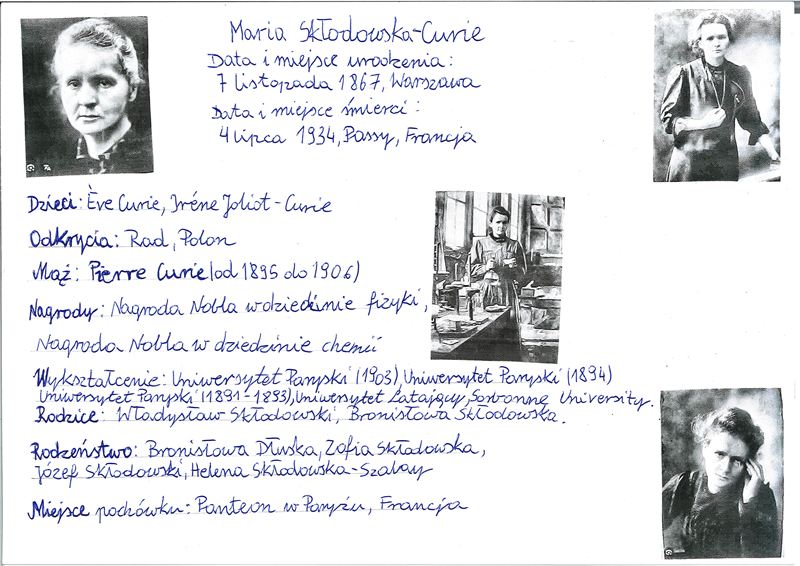 Maria Skłodowska-Curie
Data i miejsce urodzenia:
7 listopada 1867, Warszawa
Data i miejsce śmierci:
4 lipca 1934, Passy, Francja
Dzieci: Ève Curie, Iréne Joliot-Curie
Odkrycia: Rad, Polon
Mąż: Pierre Curie (od 1895 do 1906)
Nagrody: Nagroda Nobla w dziedzinie fizyki,
Nagroda Nobla w dziedzinie chemii
Wykształcenie: Uniwersytet Paryski (1903), Uniwersytet Paryski (1894)
Uniwersytet Paryski (1891-1893), Uniwersytet Latający, Sorbonne University.
Rodzice: Władysław Skłodowski, Bronisława Skłodowska.
Rodzeństwo: Bronisława Dłuska, Zofia Skłodowska,
Józef Skłodowski, Helena Skłodowska-Szalay
Miejsce pochówku: Panteon w Paryżu, Francja